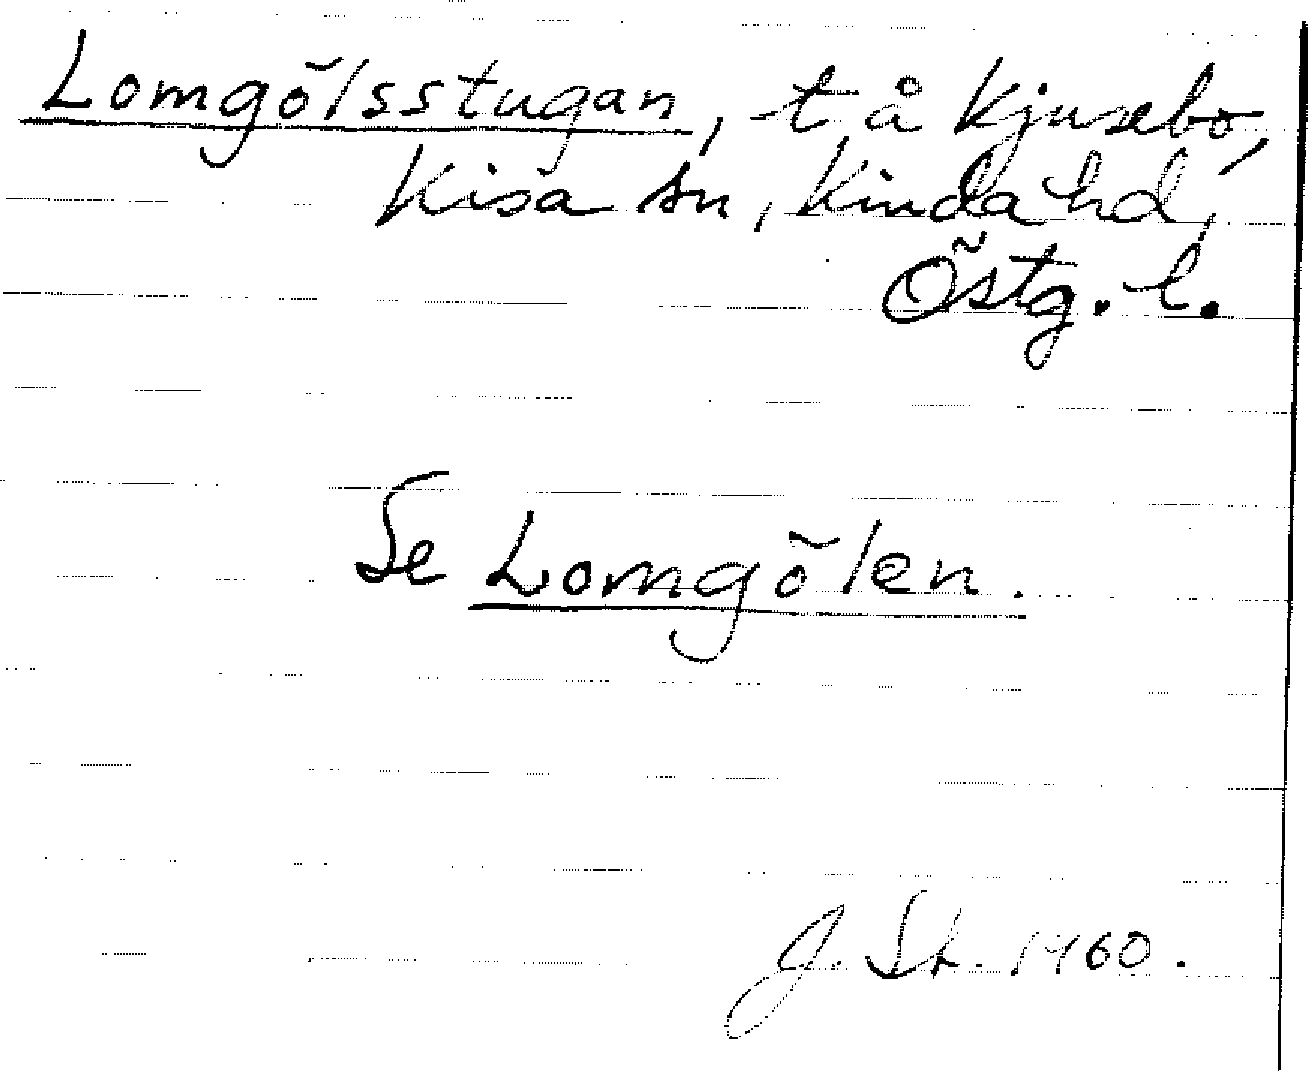 Lomgölsstugan, t å Kjusebo,
Kisa sn, Kinda hd,
Östg. l.
Se Lomgölen.
J. St. 1960.